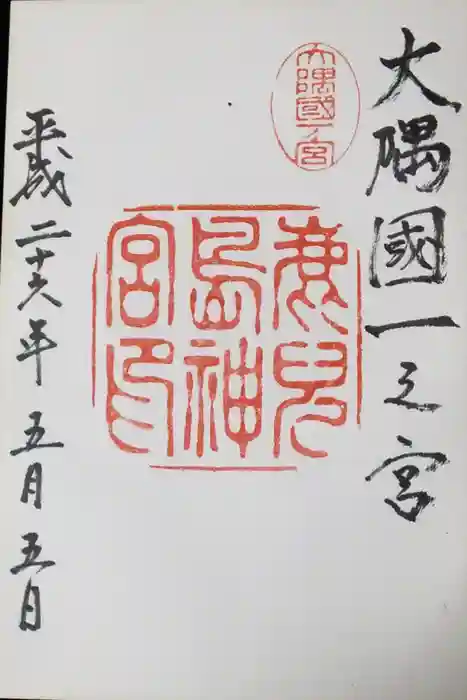 大隅國一之宮
大隅國一宮
鹿兒
島神
宮印
平成二十六年五月五日